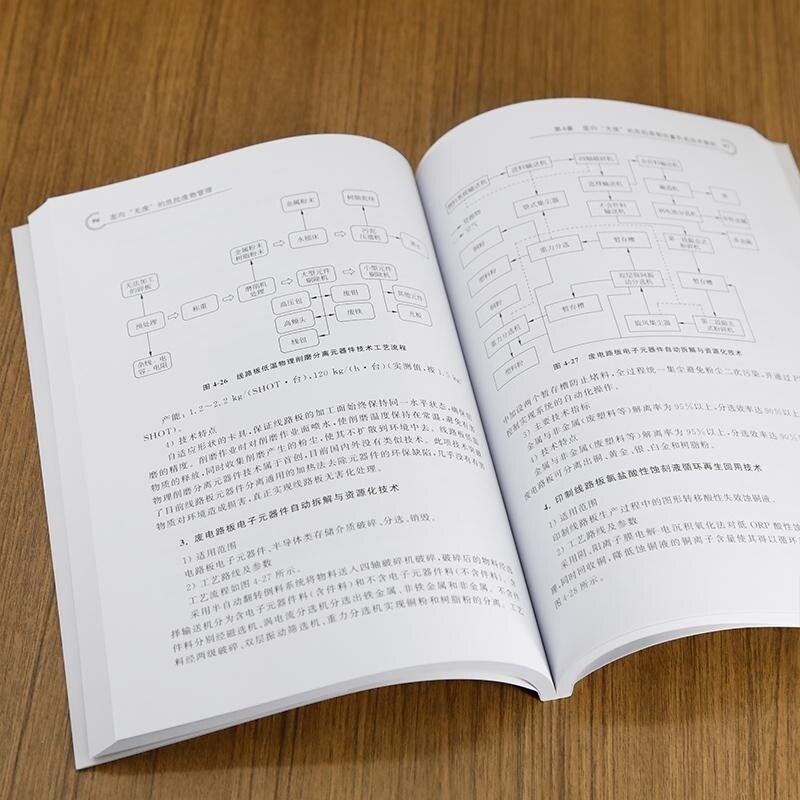 96 面向“无废”的危险废物管理
金属粉末
树脂粉末
金属粉末
树脂粉末
水摇床
污泥
压滤机
无法加工
的碎板
预处理
称重
磨削机
处理
大型元件
剔除机
小型元件
剔除机
高压包
废铝
其他元件
高频头
废铁
光板
线包
杂线、电
容、电阻
图 4-26 线路板低温物理削磨分离元器件技术工艺流程
产能：1.2~2.2 kg/(SHOT·台)，120 kg/(h·台)(实测值，按 1.5
SHOT)。
4) 技术特点
自适应形状的卡具，保证线路板的加工面始终保持同一水平状态，确保削
磨的精度。削磨作业时对削磨作业面喷水，使削磨温度保持在常温，避免有害
物质的释放，同时收集削磨产生的粉尘，使其不扩散到环境中去。线路板低温
物理削磨分离元器件技术属于首创，目前国内外没有类似技术。此项技术突破
了目前线路板元器件分离通用的加热法去除元器件的环保缺陷，几乎没有有害
物质对环境造成损害，真正实现线路板无害化处理。
3. 废电路板电子元器件自动拆解与资源化技术
1) 适用范围
电路板电子元器件、半导体类存储介质破碎、分选、销毁。
2) 工艺路线及参数
工艺流程如图 4-27 所示。
采用半自动翻转倒料系统将物料送入四轴破碎机破碎，破碎后的物料经选
择输送机分为含电子元器件料(含件料)和不含电子元器件料(不含件料)。含
件料分别经磁选机、涡电流分选机分选出铁金属、非铁金属和非金属。不含件
料经两级破碎、双层振动筛选机、重力分选机实现铜粉和树脂粉的分离。工艺
第4章 面向“无废”的危险废物
97
翻料系统输送机
进料输送机
四轴破碎机
含件料输送机
选择输送机
磁选机
铁
袋式集尘器
不含件料
输送机
涡电流分选机
非铁金属
非金属
铜粉
重力分选
暂存槽
塑料粉
双层振网振
动分选机
暂存槽
铜粉
重力分选机
暂存槽
旋风集尘器
塑料粉
图 4-27 废电路板电子元器件自动拆解与资源化技术
中加设两个暂存槽防止堵料，全过程统一集尘避免粉尘二次污染，并通过 P
控制实现系统的自动化操作。
3) 主要技术指标
金属与非金属(废塑料等)解离率为 95%以上，分选效率达 90%以上
4) 技术特点
金属与非金属(废塑料等)解离率为 95%以上，分选效率达 90%以
废电路板可分离出铜、黄金、银、白金和树脂粉。
4. 印制线路板氯盐酸性蚀刻液循环再生回用技术
1) 适用范围
印制线路板生产过程中的图形转移酸性失效蚀铜液。
2) 工艺路线及参数
采用阴、阳离子膜电解-电沉积氧化法对低 ORP 酸性蚀
理，同时回收铜，降低蚀铜液的铜离子含量使其得以循环
图 4-28 所示。